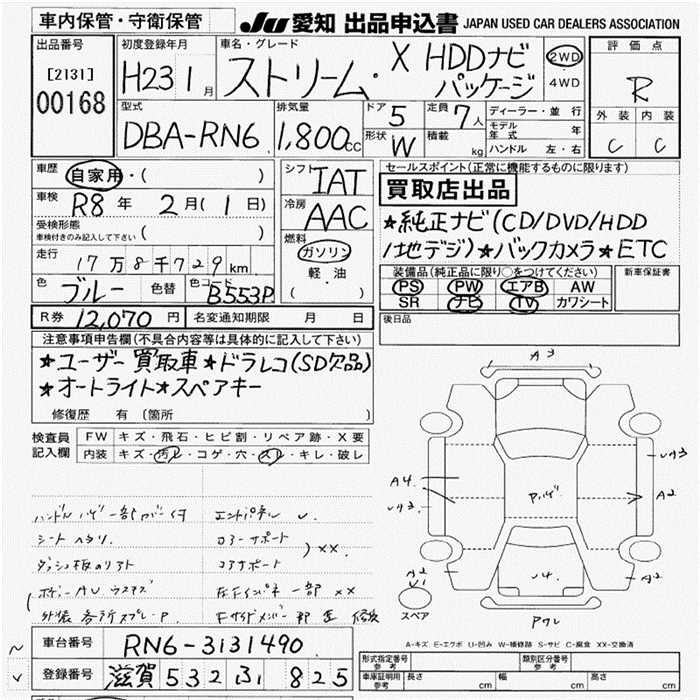 車内保管・守衛保管
JU 愛知 出品申込書 JAPAN USED CAR DEALERS ASSOCIATION
出品番号
[2131]
00168
初度登録年月
H23 1月
車名・グレード
ストリーム・ X HDDナビパッケージ
2WD
・
4WD
評価点
R
外装 内装
C C
型式
DBA-RN6
排気量
1,800cc
ドア 5
形状 W
定員 7人
積載 kg
ディーラー・並行
モデル年式 年
ハンドル 左・右
車歴
自家用・( )
車検
R8年 2月(1日)
受検形態
車検付きのみ記入して下さい ( )
走行
17万8千729km
色 ブルー 色替 色コード B553P
シフト
IAT
冷房
AAC
燃料
ガソリン
軽・油
( )
セールスポイント(正常に機能するものに限ります)
買取店出品
★純正ナビ(CD/DVD/HDD
/地デジ)★バックカメラ★ETC
装備品(純正品に限り○をつけてください)
PS PW エアB AW
SR ナビ TV カワシート
新車保証書
後日品
R券 12,070円 名変通知期限 月 日
注意事項申告欄(不具合内容等は具体的に記入して下さい)
★ユーザー買取車★ドラレコ(SD欠品)
★オートライト★スペアキー
修復歴 有(箇所 )
検査員記入欄
FW キズ・飛石・ヒビ割・リペア跡・X要
内装 キズ・汚レ・コゲ・穴・スレ・キレ・破レ
シートヘタリ
コアサポート
××
A3
A4
A2
スペア
車台番号 RN6-3131490
登録番号 滋賀 532 ふ 825
A-キズ E-エクボ U-凹み W-補修跡 S-サビ C-腐食 XX-交換済
形式指定番号 参考
類別区分番号 参考
車庫証明用 参考 長さ cm 幅 cm 高さ cm